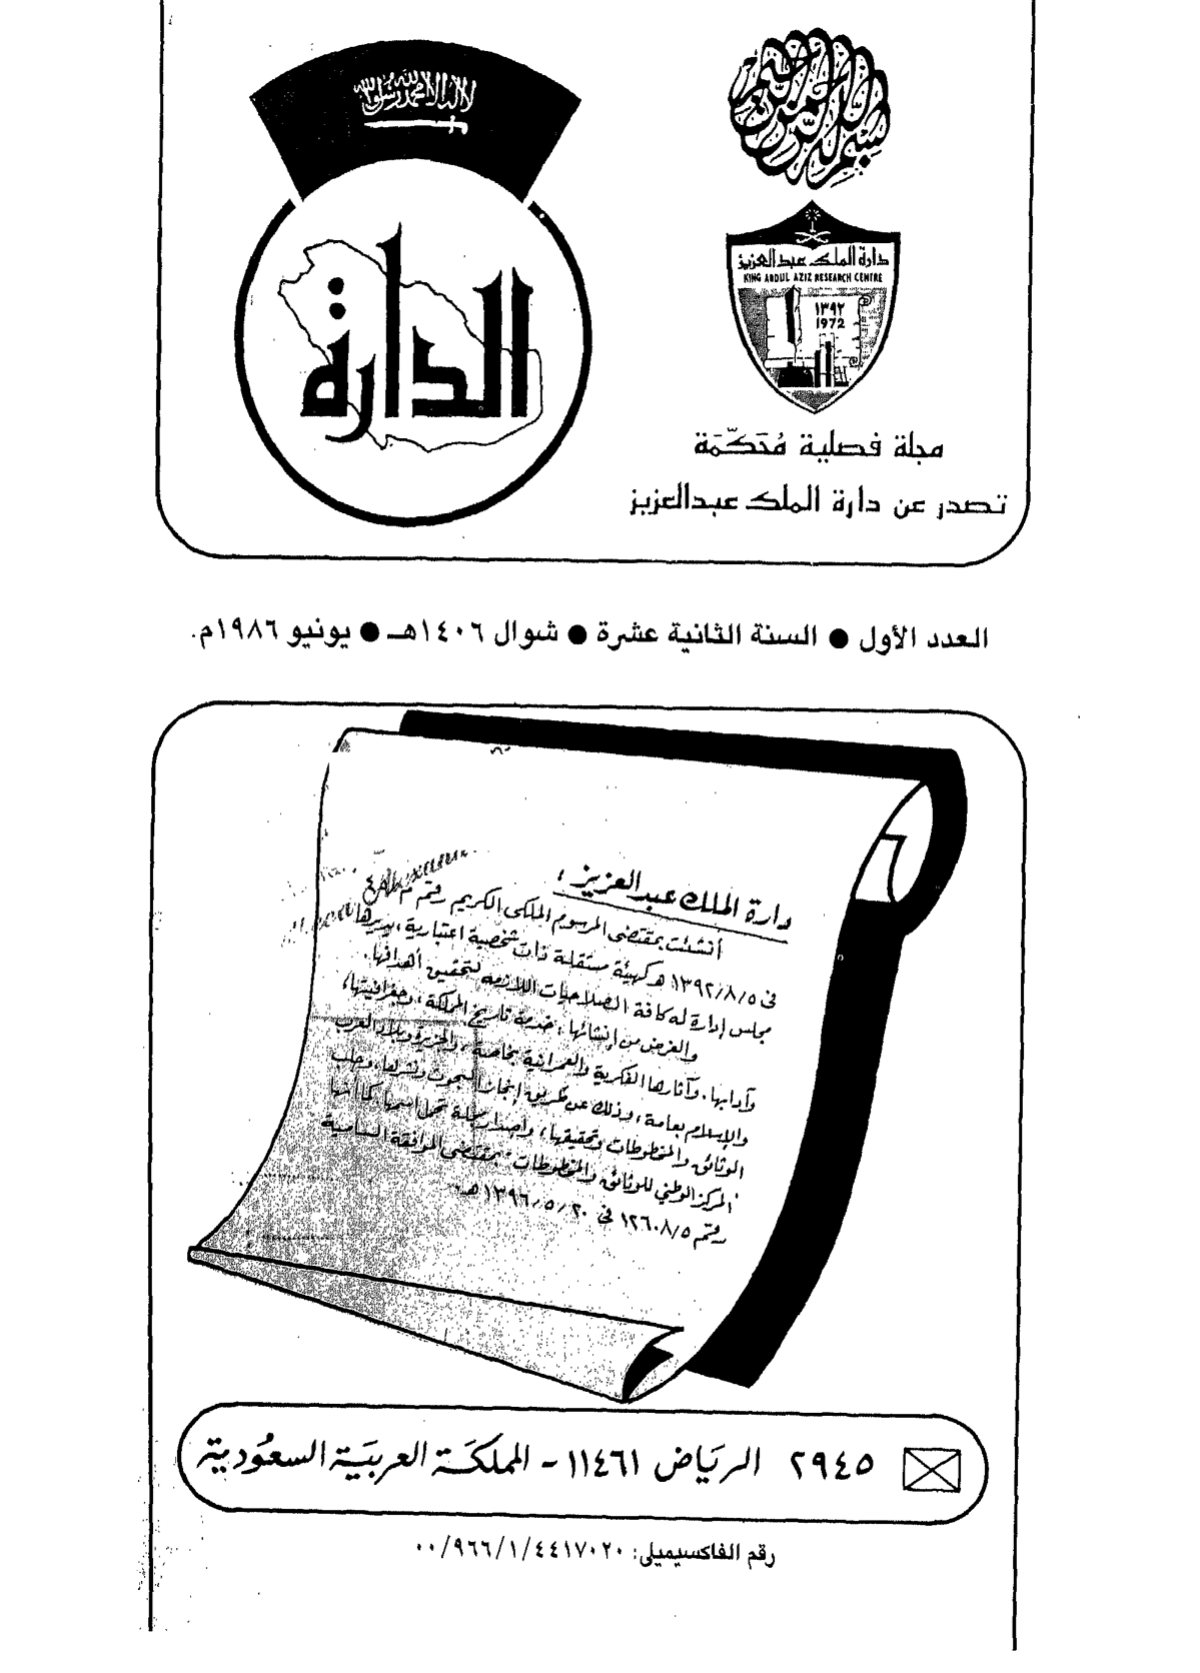 بسم الله الرحمن الرحيم
لا إله إلا الله محمد رسول الله
الدارة
دارة الملك عبدالعزيز
KING ABDUL AZIZ RESEARCH CENTRE
١٣٩٢
1972
مجلة فصلية مُحَكَّمَة
تصدر عن دارة الملك عبدالعزيز
العدد الأول ● السنة الثانية عشرة ● شوال ١٤٠٦هـ ● يونيو ١٩٨٦م.
دارة الملك عبد العزيز :
أنشئت بمقتضى المرسوم الملكى الكريم رقم م
فى ١٣٩٢/٨/٥ هـ كهيئة مستقلة ذات شخصية اعتبارية، يديرها
مجلس إدارة له كافة الصلاحيات اللازمة لتحقيق أهدافها.
والغرض من إنشائها: خدمة تاريخ المملكة، وجغرافيتها،
وآدابها، وآثارها الفكرية والعمرانية بخاصة، والجزيرة وبلاد العرب
والإسلام بعامة، وذلك عن طريق إنجاز البحوث ونشرها، وجلب
الوثائق والمخطوطات وتحقيقها، وإصدار مجلة تحمل اسمها، كما أنها
المركز الوطني للوثائق والمخطوطات: بمقتضى الموافقة السامية
رقم ١٢٦٠٨/٥ في ١٣٩٦/٥/٢٠ هـ
٢٩٤٥ الريَاض ١١٤٦١ - المملكَة العربيَة السعُودية
رقم الفاكسيميلى: ٠٠/٩٦٦/١/٤٤١٧٠٢٠